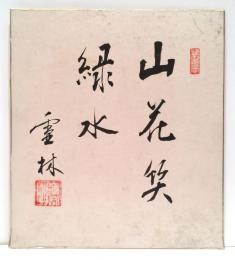 山花笑
緑水
雲林